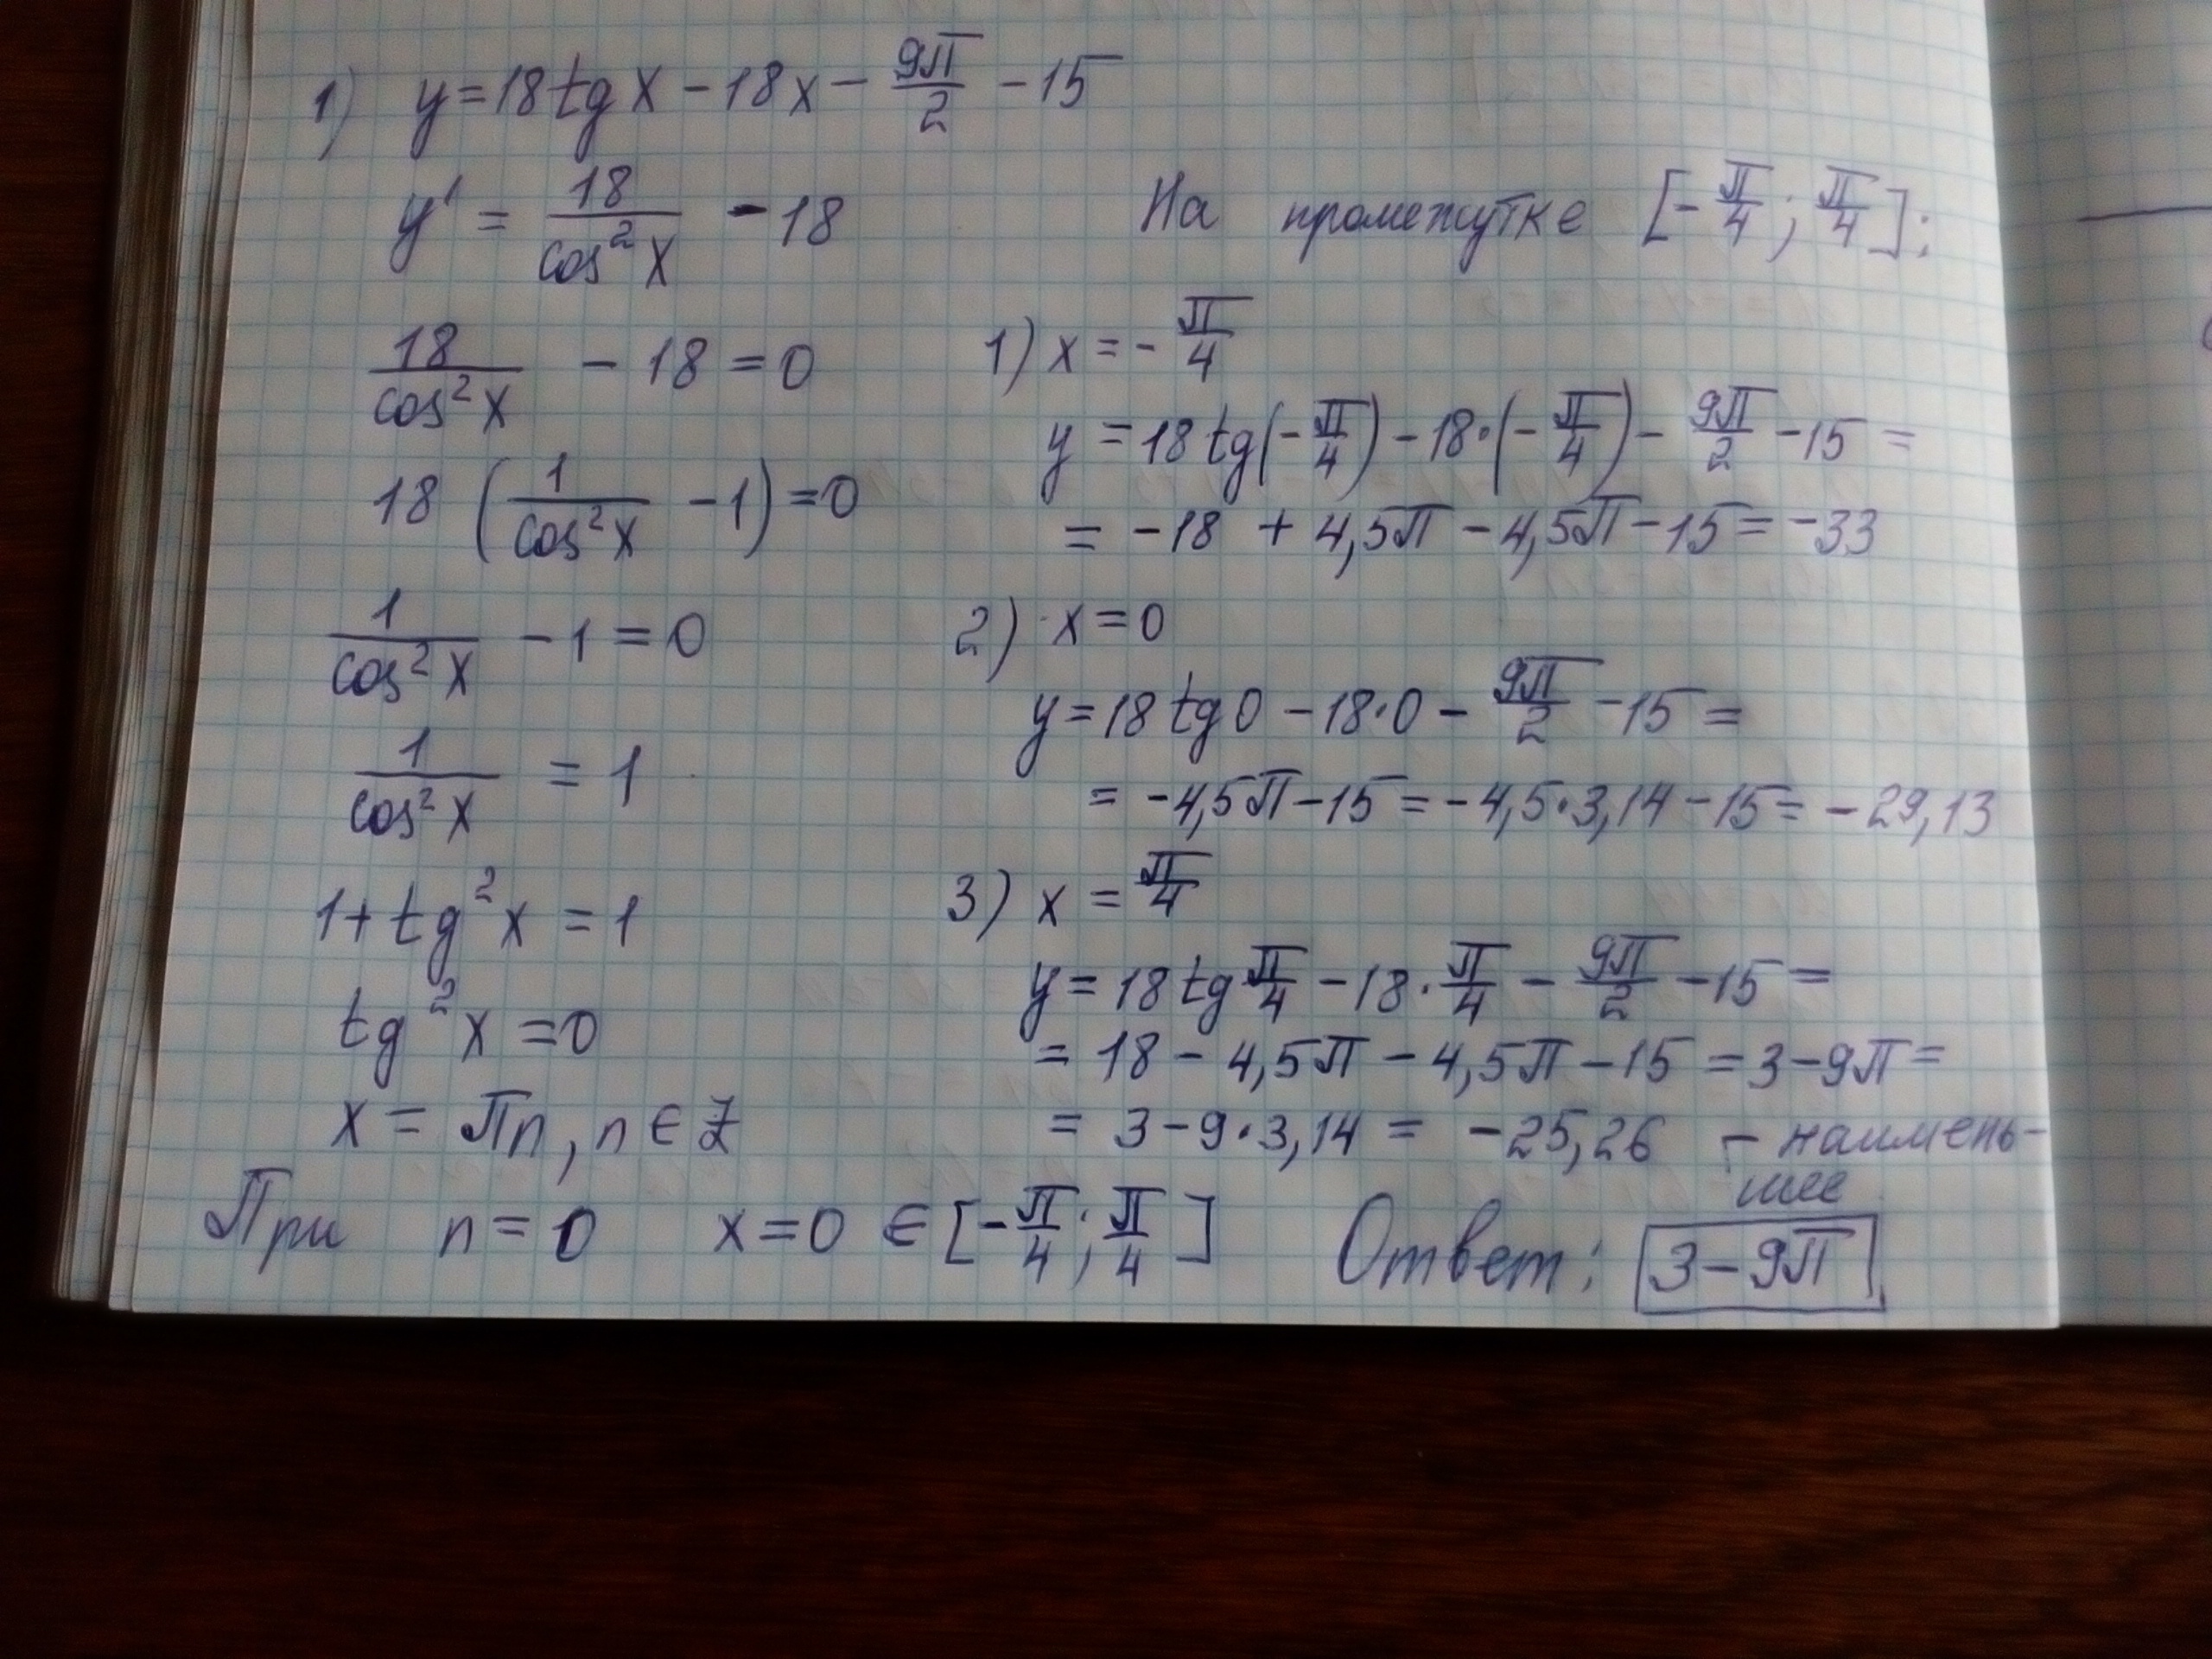 1) y = 18 tg x - 18x - 9π/2 - 15
y' = 18/cos²x - 18
18/cos²x - 18 = 0
18 (1/cos²x - 1) = 0
1/cos²x - 1 = 0
1/cos²x = 1
1 + tg²x = 1
tg²x = 0
x = πn, n ∈ Z
При n = 0 x = 0 ∈ [-π/4; π/4]
На промежутке [-π/4; π/4]:
1) x = -π/4
y = 18 tg(-π/4) - 18·(-π/4) - 9π/2 - 15 =
= -18 + 4,5π - 4,5π - 15 = -33
2) x = 0
y = 18 tg 0 - 18·0 - 9π/2 - 15 =
= -4,5π - 15 = -4,5·3,14 - 15 = -29,13
3) x = π/4
y = 18 tg π/4 - 18·π/4 - 9π/2 - 15 =
= 18 - 4,5π - 4,5π - 15 = 3 - 9π =
= 3 - 9·3,14 = -25,26 - наимень-
шее
Ответ: 3 - 9π.